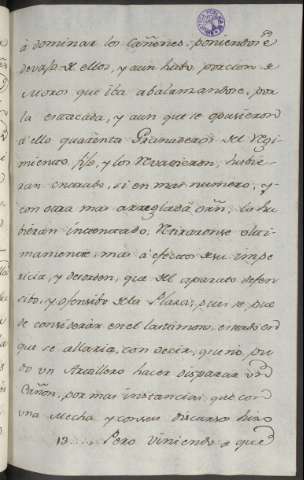 á dominar los Cañones, poniendose
devajo de ellos, y aun hubo porcion de
Moros que iba abalanzandose, por
la estacada, y aun que se opusieron
á ello quarenta Granaderos del Regi-
miento fixo, y los revatieron, hubie-
ran entrado, si en mas numero, y
con otra mas arreglada orñ, lo hu-
bieran intentado; Retiraronse ulti-
mamente, mas á efectos de su impe-
ricia, y desorden, que del aparato defen-
sivo, y ofensivo de la Plaza; pues se pue-
de considerar en el lastimoso, estado en
que se allaria, con decir, que no pu-
do un Artillero hacer disparar un
Cañon, por mas instancias que con
una Mecha y con su discurso hizo
13..... Pero viniendo a que